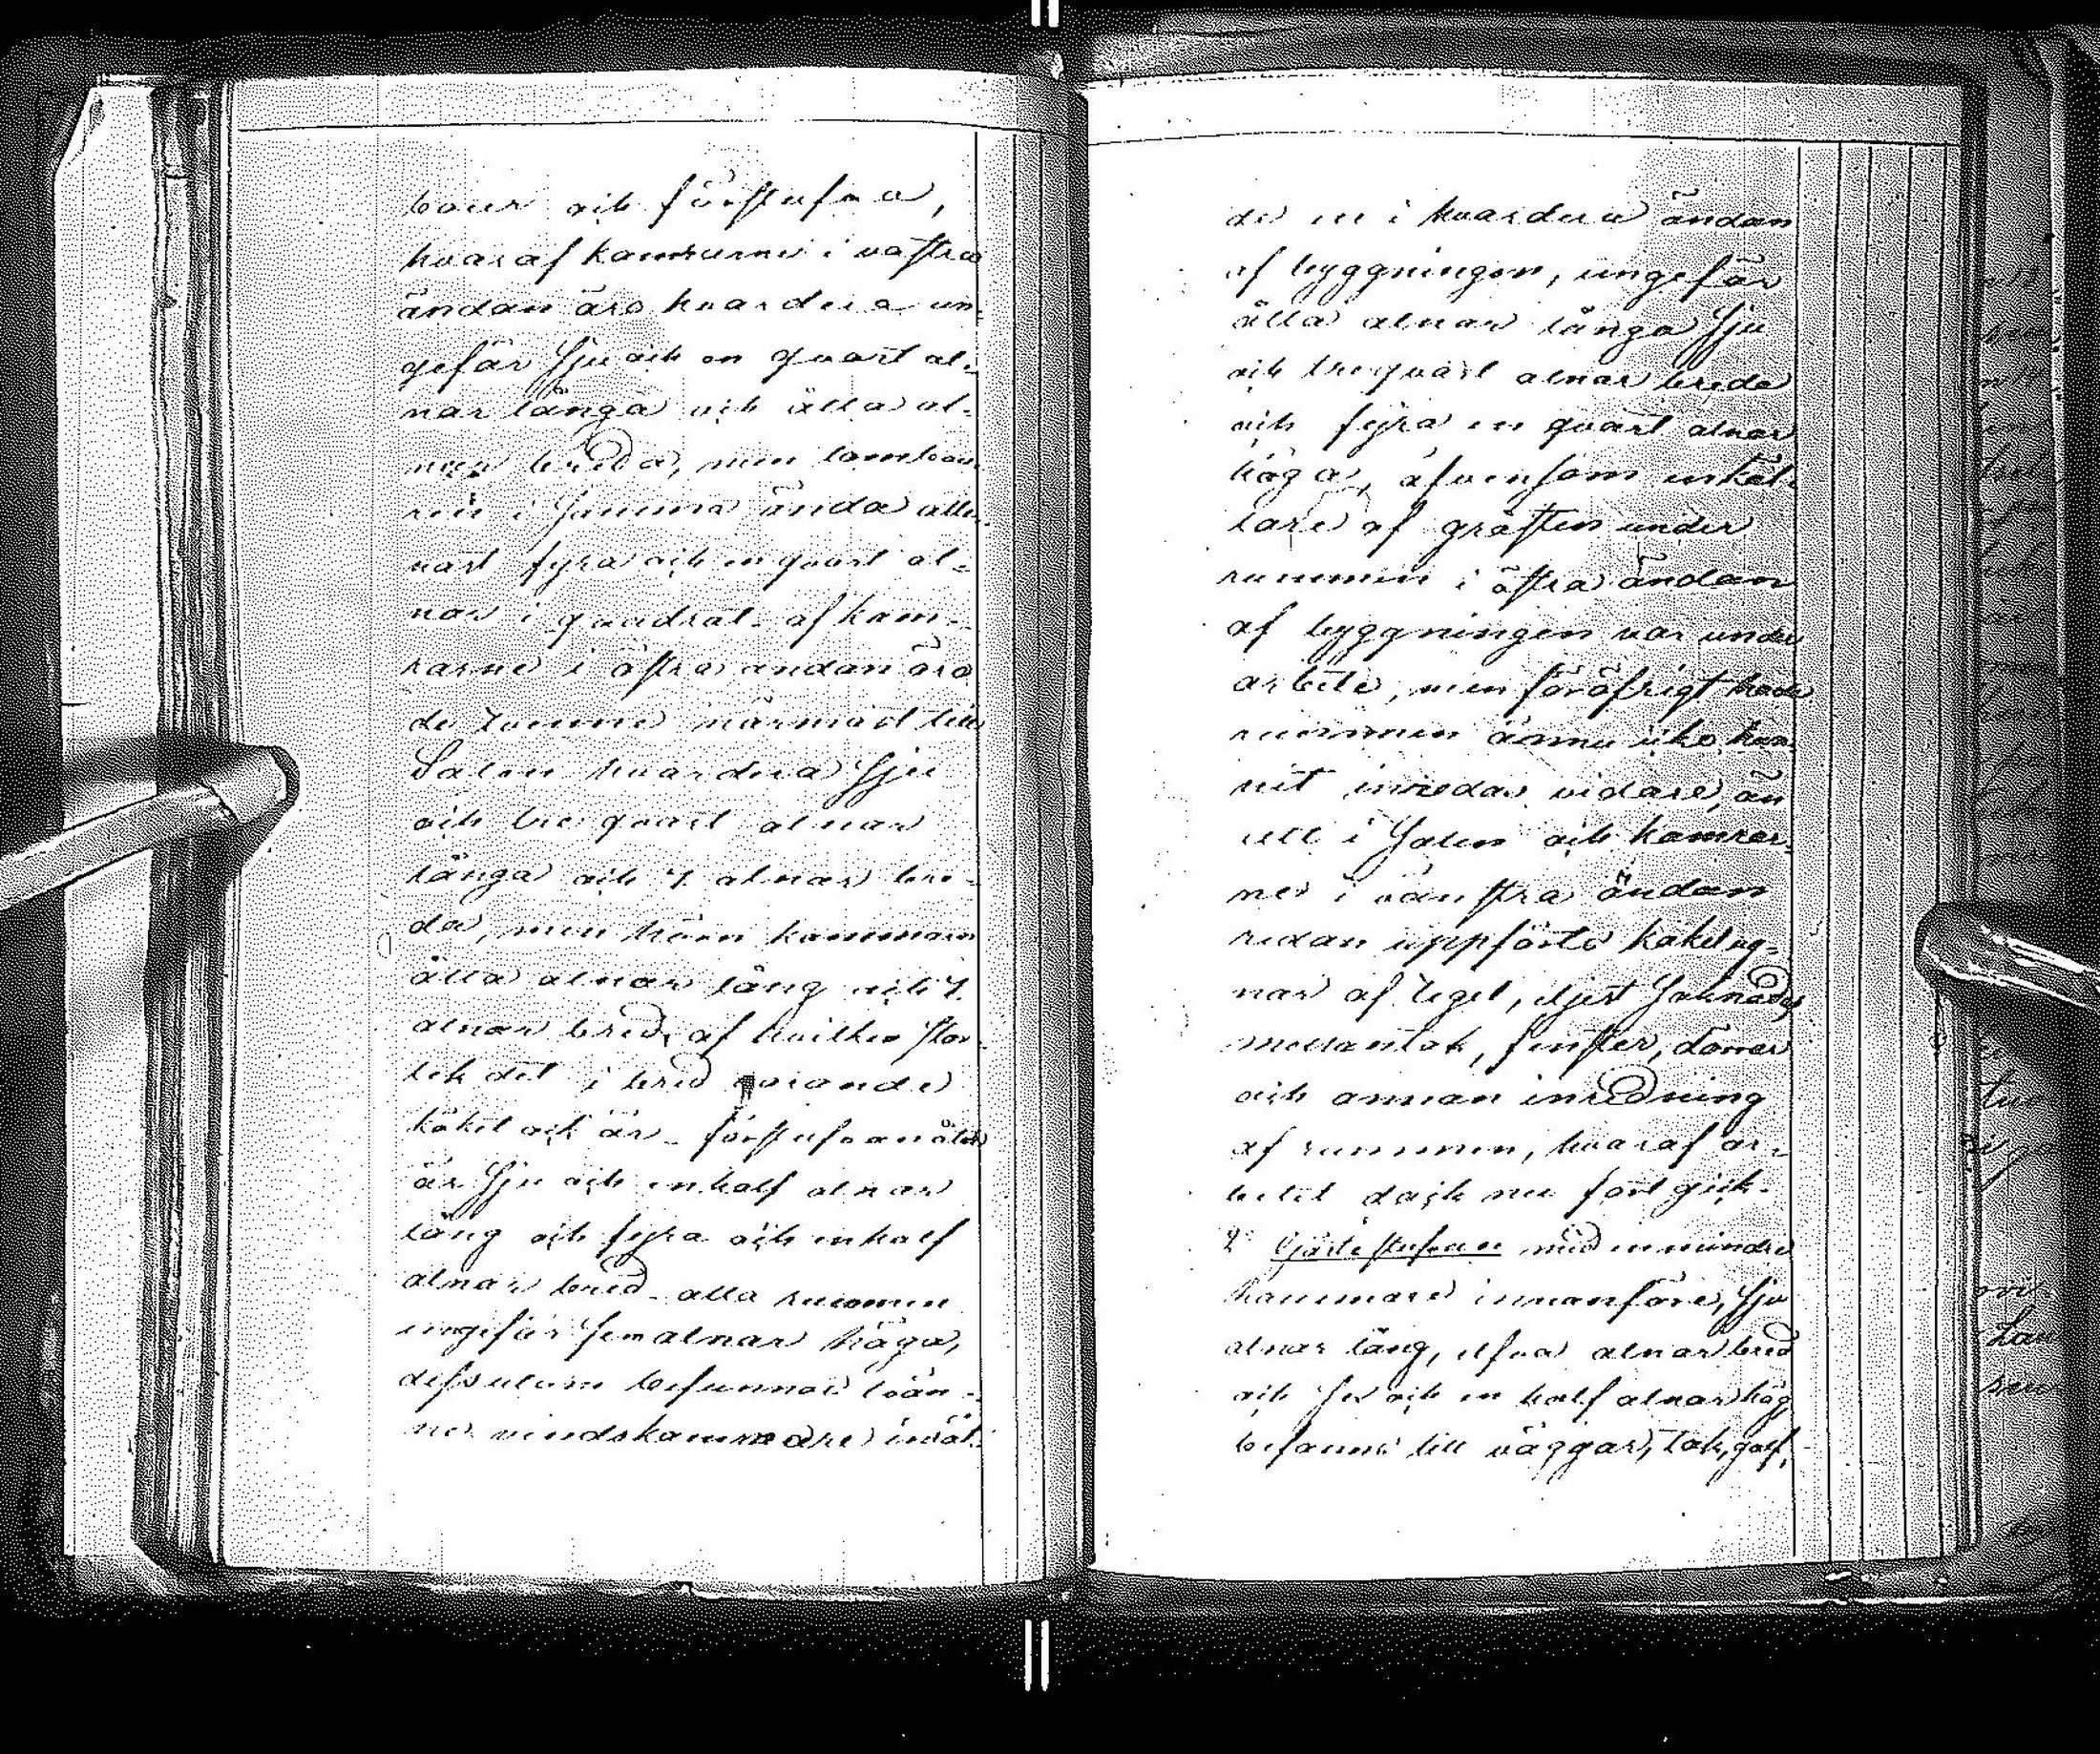 baur och förstufva,
hvaraf kamrarne i vestra
ändan äro hvardera un-
gefär sju och en qvart al-
nar långa och åtta al-
nar breda, men
i samma ända alle-
nast fyra och en qvart al-
nar i quadrat. af kam-
rarne i östra ändan äro
de tvenne närmast till
Salen hvardera sju
och tre qvart alnar
långa och 7 alnar bre-
da, men hörn kammaren
åtta alnar lång och 7
alnar bred, af hvilken stor-
lek det i bred varande
köket ock är. förstufvan åter
är sju och en half alnar
lång och fyra och en half
alnar bred. alla rummen
ungefär fem alnar höga,
dessutom befunnos tvän-
ne vindskammare inräk-
de en i hvardera ändan
af byggningen, ungefär
åtta alnar långa sju
och tre qvart alnar breda
och fyra en qvart alnar
höga, äfvensom en käl-
lare af gråsten under
rummen i östra ändan
af byggningen var under
arbete, men föröfrigt hade
rummen ännu icke hun-
nit inredas vidare, än
att i Salen och kamrar-
ne i vänstra ändan
redan uppförts kakelug-
nar af tegel, eljest saknades
mellantak, fenster, dörrar
och annan inredning
af rummen, hvaraf ar-
betet dock nu fortgick.
2o Gästestufvan med en mindre
kammare innanföre, sju
alnar lång, elfva alnar bred
och sex och en half alnar hög
befanns till väggar, tak, golf,